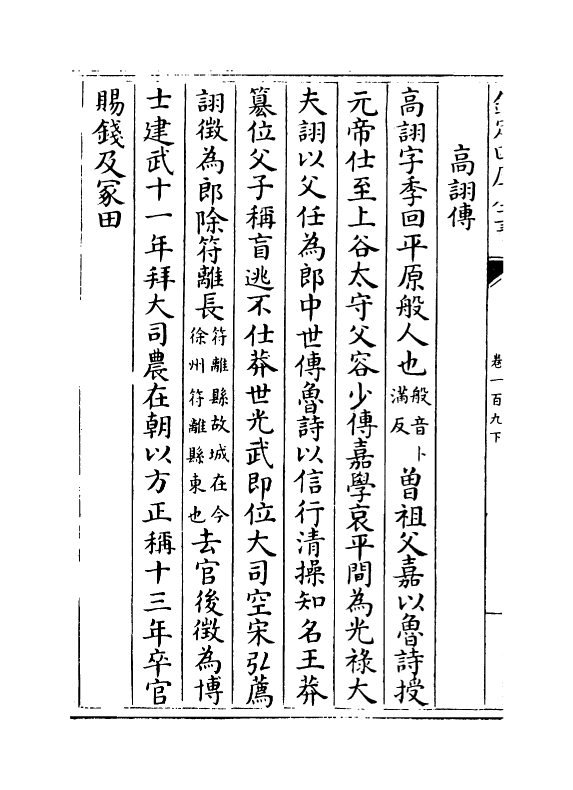 欽定四庫全書
卷一百九下
高詡傳
高詡字季回平原般人也般音卜滿反曾祖父嘉以魯詩授
元帝仕至上谷太守父容少傳嘉學哀平間為光祿大
夫詡以父任為郎中世傳魯詩以信行清操知名王莽
簒位父子稱盲逃不仕莽世光武即位大司空宋弘薦
詡徵為郎除符離長符離縣故城在今徐州符離縣東也去官後徵為博
士建武十一年拜大司農在朝以方正稱十三年卒官
賜錢及冢田